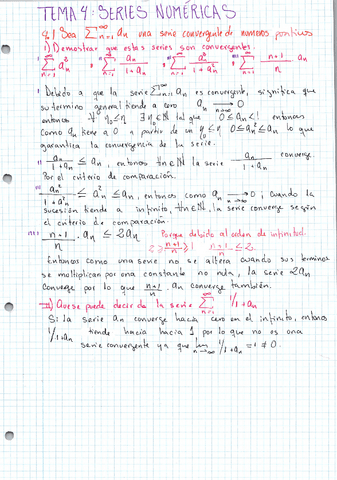 TEMA 4: SERIES NUMÉRICAS
9.1 Sea ∑_{n=1}^∞ a_n una serie convergente de numeros positivos
i) Demostrar que estas series son convergentes.
i ∑_{n=1}^∞ a_n² ii ∑_{n=1}^∞ a_n/(1+a_n) iii ∑_{n=1}^∞ a_n²/(1+a_n²) iiii ∑_{n=1}^∞ (n+1)/n a_n
i Debido a que la serie ∑_{n=1}^∞ a_n es convergente, significa que
su termino general tiende a cero a_n → 0 n→∞
entonces tal que 0≤a_n<1 entonces
como a_n tiene a 0 a partir de un 0≤a_n²≤a_n lo que
garantiza la convergencia de la serie.
ii a_n/(1+a_n) ≤ a_n, entonces ∀n∈ℕ la serie a_n/(1+a_n) converge
Por el criterio de comparación.
iii a_n²/(1+a_n²) ≤ a_n² ≤ a_n, entonces como a_n → 0 n→∞; cuando la
sucesión tiende a infinito, ∀n∈ℕ, la serie converge según
el criterio de comparación
iiii (n+1)/n · a_n ≤ 2a_n Porque debido al orden de infinitud
2 ≥ (n+1)/n ≥ 1 (n+1)/n ≤ 2
Entonces como una serie no se altera cuando sus terminos
se multiplican por una constante no nula, la serie 2a_n
converge por lo que (n+1)/n a_n converge también.
ii) Que se puede decir de la serie ∑_{n=1}^∞ 1/1+a_n
Si la serie a_n converge hacia cero en el infinito, entonces
1/1+a_n tiende hacia hacia 1 por lo que no es una
serie convergente ya que lim_{n→∞} 1/1+a_n = 1 ≠ 0.